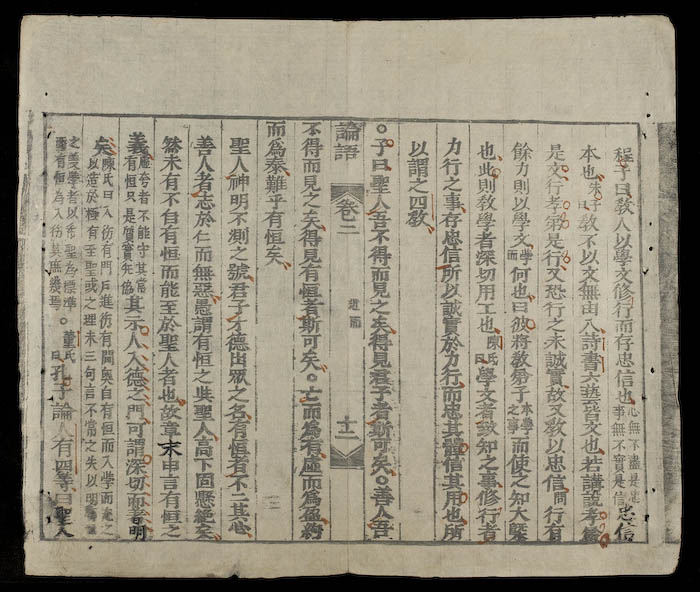 程子曰敎人以學文修行而存忠信也心無不盡是忠事無不實是信忠信
本也朱子曰敎不以文無由入詩書六藝皆文也若講說孝弟
是文行孝弟是行又恐行之未誠實故又敎以忠信問行有
餘力則以學文學而何也曰彼將敎弟子本學之事而使之知大槩
也此則敎學者深切用工也陳氏曰學文者致知之事修行者
力行之事存忠信所以誠實於力行而忠其體信其用也所
以謂之四敎
○子曰聖人吾不得而見之矣得見君子者斯可矣○善人吾
論語 卷二 述而 十二
不得而見之矣得見有恒者斯可矣○亡而爲有虛而爲盈約
而爲泰難乎有恒矣
聖人神明不測之號君子才德出眾之名有恒者不二其心
善人者志於仁而無惡愚謂有恒之與聖人高下固懸絶矣
然未有不自有恒而能至於聖人者也故章末申言有恒之
義虛夸者不能守其常有恒只是質實其示人入德之門可謂深切而著明
矣陳氏曰入彷有門戶進彷有閫奧自有恒而入學而充之以造於極有至聖或之理末三句言不當之失以明
之義學者以希聖爲標準有恒爲入彷其庶幾焉董氏曰孔子論人有四等曰聖人